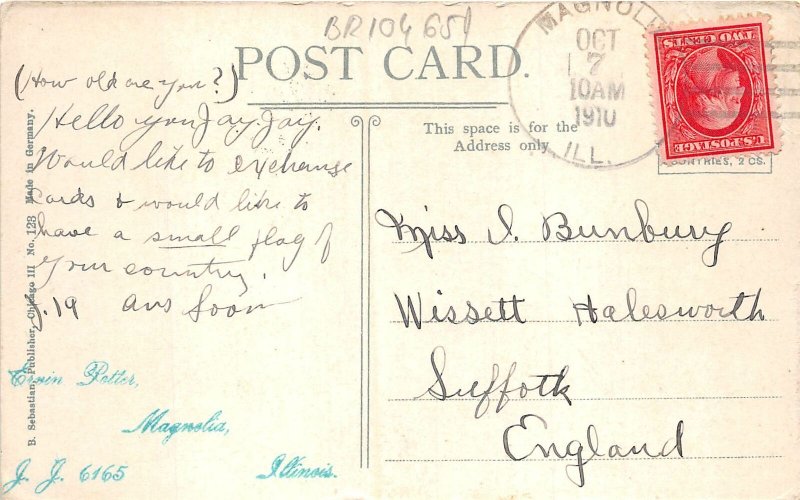 BR104651
POST CARD.
MAGNOLI
OCT
7
10AM
1910
ILL.
TWO CENTS
U.S. POSTAGE
OUNTRIES, 2 CS.
This space is for the
Address only
(How old are you?)
Hello you Jay Jay.
Would like to exchange
cards & would like to
have a small flag of
your country.
J. 19 ans soon
Ervin Potter,
Magnolia,
J. J. 6165 Illinois.
Miss I. Bunbury
Wissett Halesworth
Suffolk
England
B. Sebastian, Publisher, Chicago Ill No. 123 Made in Germany.